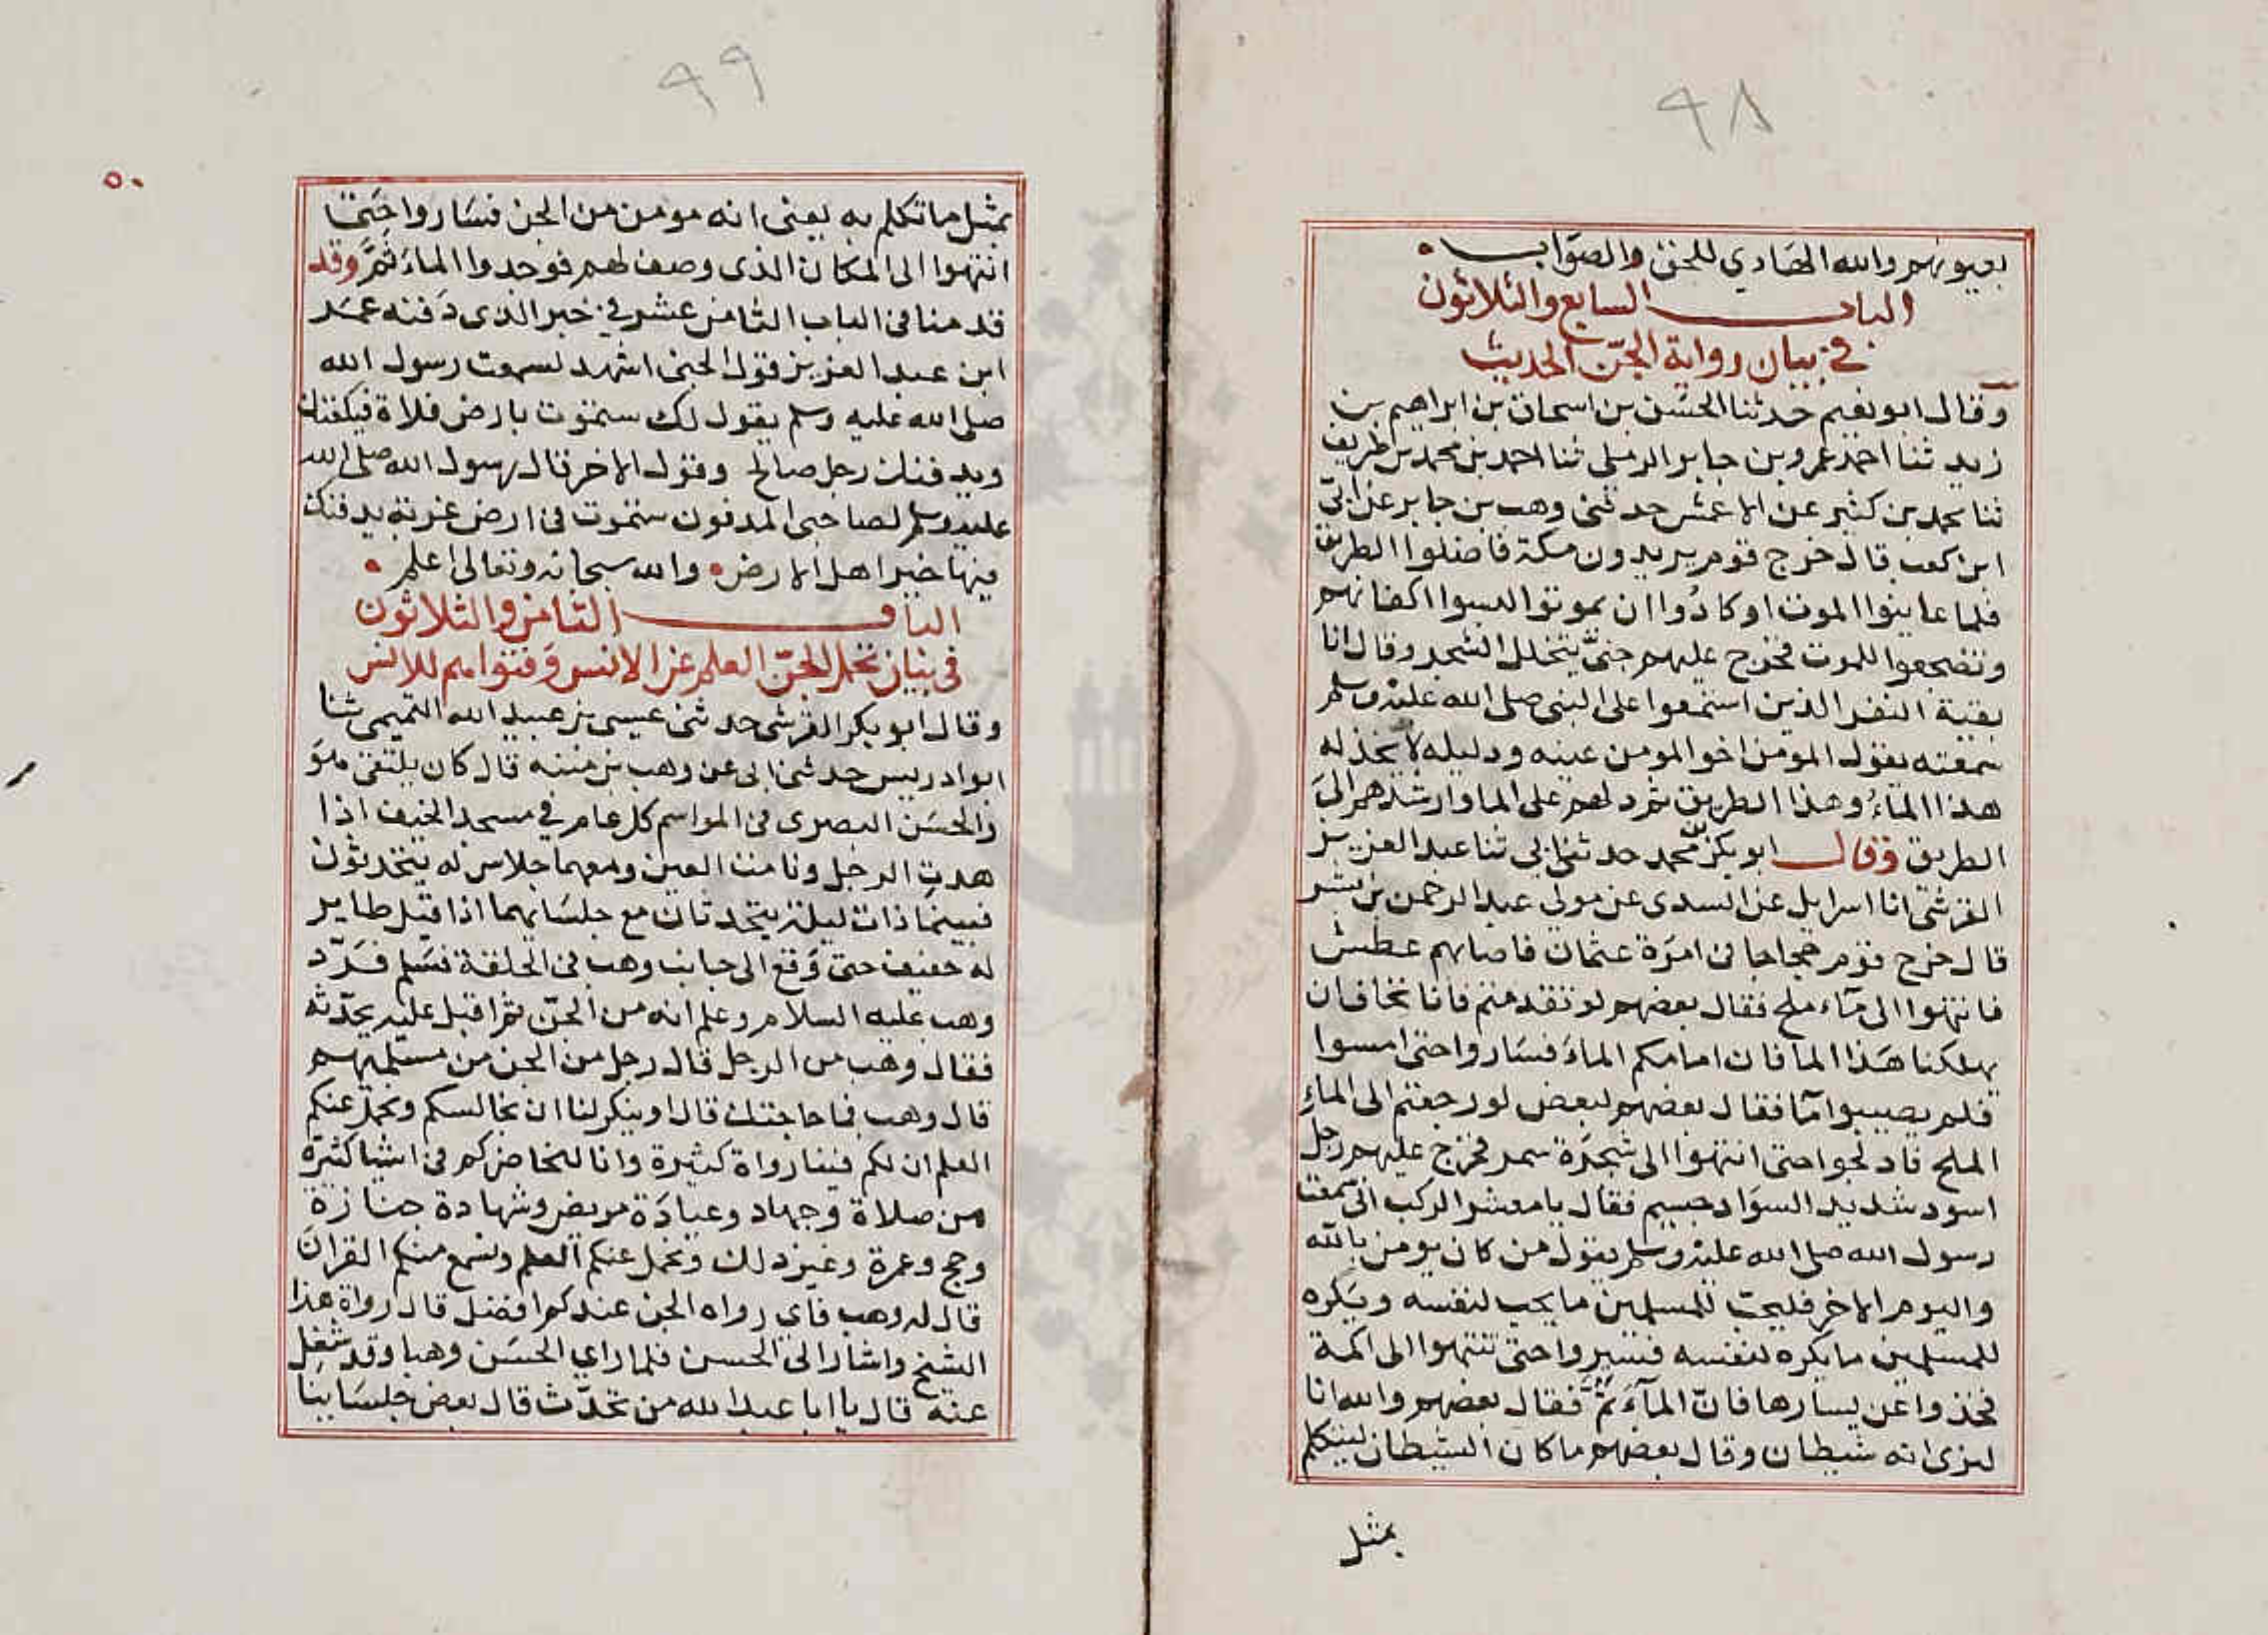 ٩٨
بعيونهم والله الهادي للحق والصواب
الباب السابع والثلاثون
في بيان رواية الجن الحديث
وقال ابو نعيم حدثنا الحسن بن اسحاق بن ابراهيم بن
زيد ثنا احمد عمرو بن جابر الرملي ثنا احمد بن محمد بن طريف
ثنا محمد بن كثير عن الاعمش حدثني وهب بن جابر عن ابي
ابن كعب قال خرج قوم يريدون مكة فاضلوا الطريق
فلما عاينوا الموت او كادُوا ان يموتوا لبسوا اكفانهم
وتضجعوا للموت فخرج عليهم جنيٌّ يتخلل الشجر وقال انا
بقية النفر الذين استمعوا على النبي صلى الله عليه وسلم
سمعته يقول المومن اخو المومن عينه ودليله لا يخذله
هذا الماءُ وهذا الطريق ثم دلهم على الما وارشدهم الى
الطريق وقال ابو بكر محمد حدثني ابي ثنا عبد العزيز
القرشي انا اسرايل عن السدي عن مولى عبد الرحمن بن بشر
قال خرج قوم حجاجا في امرة عثمان فاصابهم عطش
فانتهوا الى مآء ملح فقال بعضهم لو تقدمتم فانا نخاف ان
يهلكنا هذا الما فان امامكم الماء فساروا حتى امسوا
فلم يصيبوا مآ فقال بعضهم لبعض لو رجعتم الى الماء
الملح فادلجوا حتى انتهوا الى شجرة سمر فخرج عليهم رجل
اسود شديد السواد جسيم فقال يا معشر الركب اني سمعت
رسول الله صلى الله عليه وسلم يقول من كان يومن بالله
واليوم الاخر فليحب للمسلمين ما يحب لنفسه ويكره
للمسلمين ما يكره لنفسه فسيروا حتى تنتهوا الى اكمة
فخذوا عن يسارها فانّ المآء ثَمَّ فقال بعضهم والله انا
لنرى انه شيطان وقال بعضهم ما كان الشيطان ليتكلم
بمثل
٩٩
٥٠
بمثل ما تكلم به يعني انه مومن من الجن فساروا حتى
انتهوا الى المكان الذي وصف لهم فوجدوا الماء ثمَّ وقد
قدمنا في الباب الثامن عشر في خبر الذي دفنه عمر
ابن عبد العزيز قول الجني اشهد لسمعت رسول الله
صلى الله عليه وسلم يقول لك ستموت بارض فلاة فيكفنك
ويدفنك رجل صالح وقول الاخر قال رسول الله صلى الله
عليه وسلم لصاحبي المدفون ستموت في ارض غربة يدفنك
فيها خير اهل الارض والله سبحانه وتعالى اعلم
الباب الثامن والثلاثون
في بيان تحمل الجن العلم عن الانس وفتواهم للانس
وقال ابو بكر القرشي حدثني عيسى بن عبيد الله التميمي ثنا
ابو ادريس حدثني ابي عن وهب بن منبه قال كان يلتقي هو
والحسن البصري في المواسم كل عام في مسجد الخيف اذا
هدت الرجل ونامت العين ومعهما جلاس له يتحدثون
فبينما ذات ليلة يتحدثان مع جلسايهما اذ اقبل طاير
له حفيف حتى وقع الى جانب وهب في الحلقة فسلم فردّ
وهب عليه السلام وعلم انه من الجن ثم اقبل عليه يحدّثه
فقال وهب من الرجل قال رجل من الجن من مسلميهم
قال وهب فما حاجتك قال اوينكر لنا ان نجالسكم ونحمل عنكم
العلم ان لكم فينا رواة كثيرة وانا لنحاضركم في اشيا كثيرة
من صلاة وجهاد وعيادة مريض وشهادة جنازة
وحج وعمرة وغير ذلك ونحمل عنكم العلم ونسمع منكم القران
قال له وهب فاي رواه الجن عندكم افضل قال رواة هذا
الشيخ واشار الى الحسن فلما راي الحسن وهبا وقد شُغِل
عنه قال يا ابا عبد الله من تحدّث قال بعض جلساينا